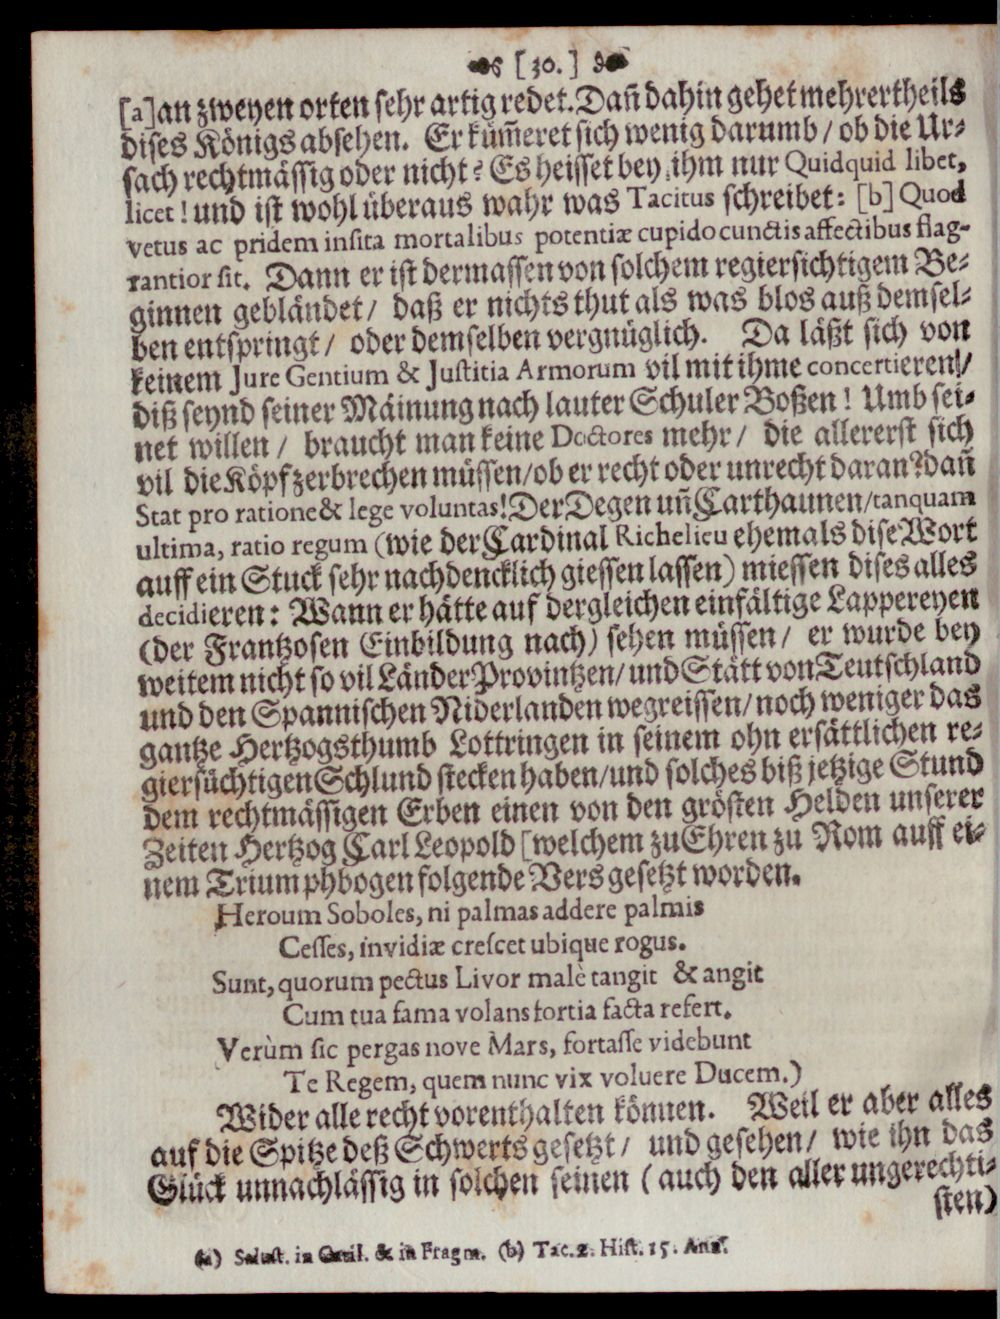 [30.]
[a] an zweyen orten sehr artig redet. Dañ dahin gehet mehrertheils
dises Königs absehen. Er küm̃eret sich wenig darumb / ob die Ur-
sach rechtmässig oder nicht? Es heisset bey ihm nur Quidquid libet,
licet! und ist wohl überaus wahr was Tacitus schreibet: [b] Quod
vetus ac pridem insita mortalibus potentiæ cupido cunctis affectibus flag-
rantior sit. Dann er ist dermassen von solchem regiersichtigem Be-
ginnen gebländet / daß er nichts thut als was blos auß demsel-
ben entspringt / oder demselben vergnüglich. Da läßt sich von
keinem Jure Gentium & Justitia Armorum vil mit ihme concertieren! /
diß seynd seiner Mäinung nach lauter Schuler Boßen! Umb sei-
net willen / braucht man keine Doctores mehr / die allererst sich
vil die Köpf zerbrechen müssen / ob er recht oder unrecht daran? dañ
Stat pro ratione & lege voluntas! Der Degen uñ Carthaunen / tanquam
ultima, ratio regum (wie der Cardinal Richelieu ehemals dise Wort
auff ein Stuck sehr nachdencklich giessen lassen) miessen dises alles
decidieren: Wann er hätte auf dergleichen einfältige Lappereyen
(der Frantzosen Einbildung nach) sehen müssen / er wurde bey
weitem nicht so vil Länder Provintzen / und Stätt von Teutschland
und den Spannischen Niderlanden wegreissen / noch weniger das
gantze Hertzogsthumb Lottringen in seinem ohn ersättlichen re-
giersüchtigen Schlund stecken haben / und solches biß jetzige Stund
dem rechtmässigen Erben einen von den grösten Helden unserer
Zeiten Hertzog Carl Leopold [welchem zu Ehren zu Rom auff ei-
nem Triumphbogen folgende Vers gesetzt worden.
Heroum Soboles, ni palmas addere palmis
Cesses, invidiæ crescet ubique rogus.
Sunt, quorum pectus Livor malè tangit & angit
Cum tua fama volans fortia facta refert.
Verùm sic pergas nove Mars, fortasse videbunt
Te Regem, quem nunc vix voluere Ducem.)
Wider alle recht vorenthalten können. Weil er aber alles
auf die Spitze deß Schwerts gesetzt / und gesehen / wie ihn das
Glück unnachlässig in solchen seinen (auch den aller ungerechti-
sten)
(a) Salust. in Catil. & in Fragm. (b) Tac. 2. Hist. 15. Ann.